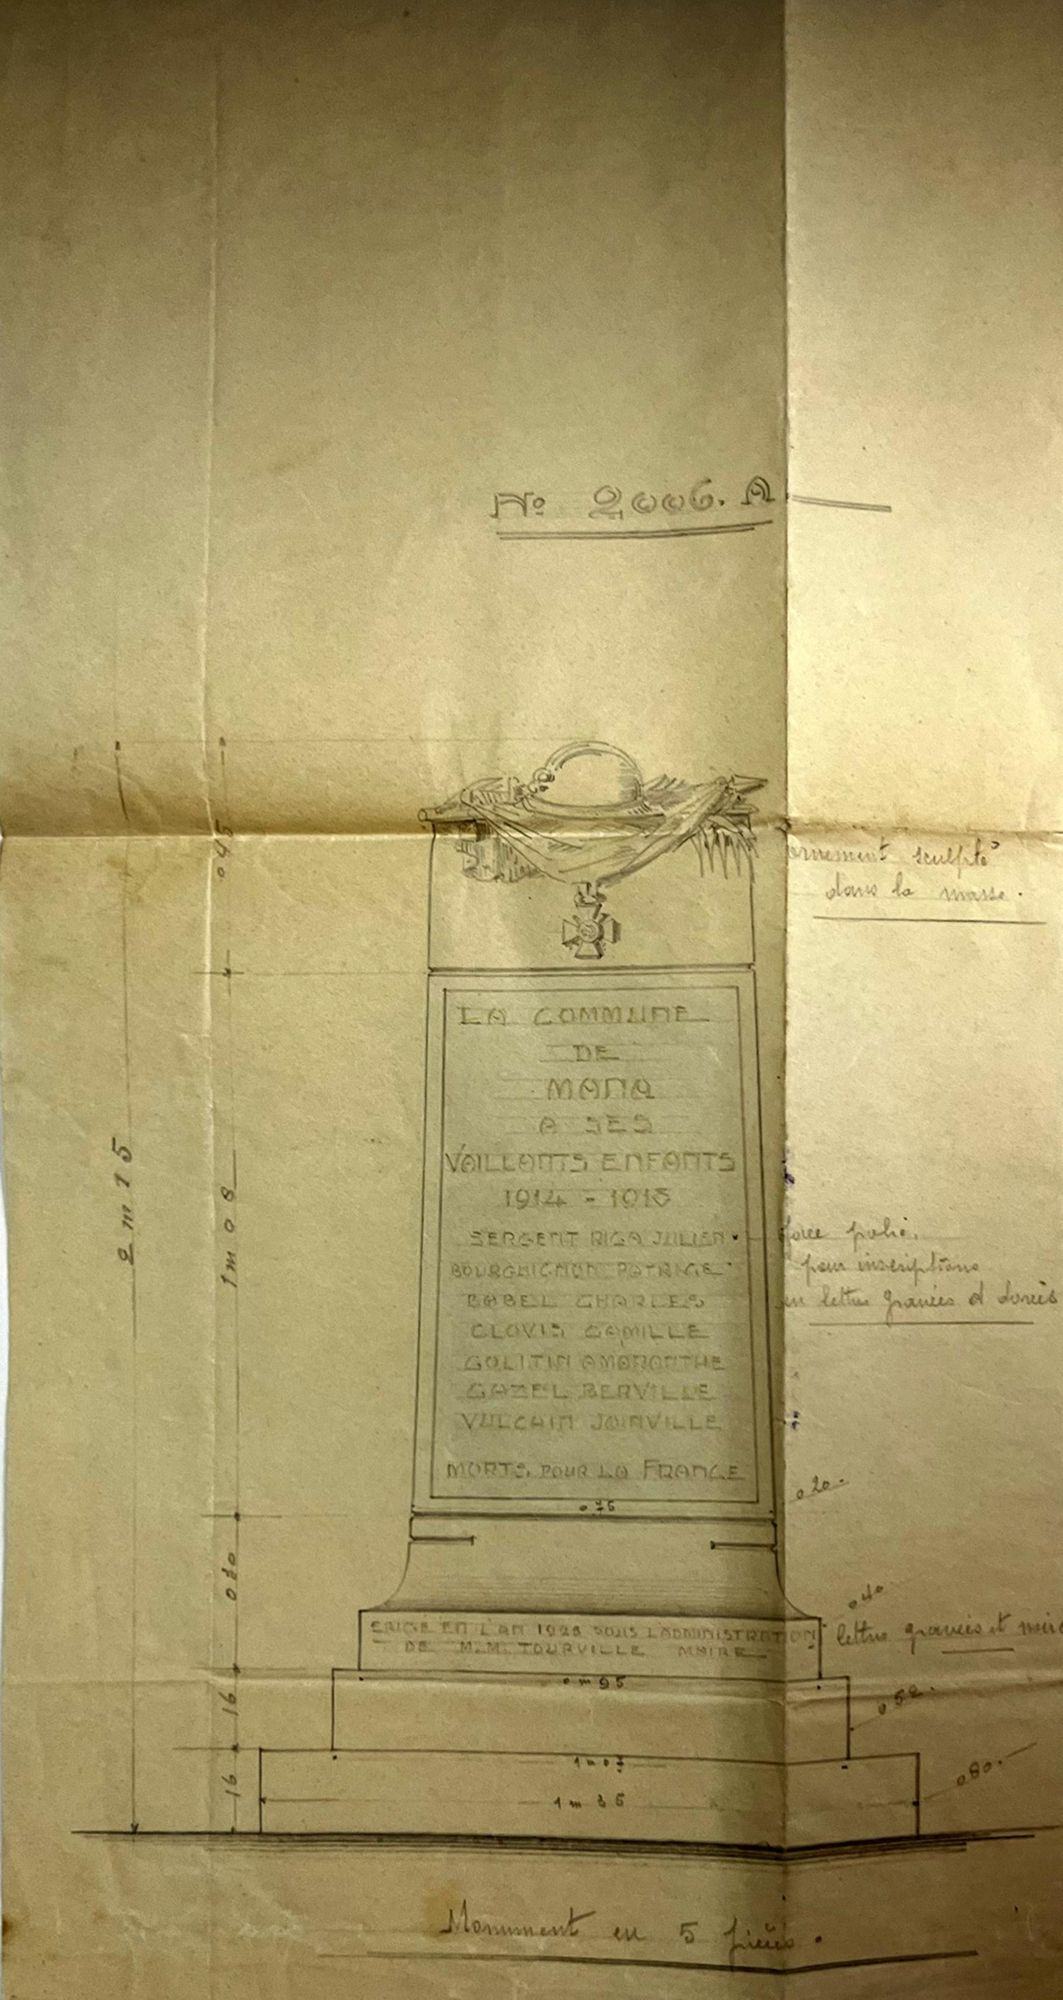 No 2006. A
ornement sculpté
dans la masse.
0 45
LA COMMUNE
DE
MANA
A SES
VAILLANTS ENFANTS
1914 - 1918
SERGENT RIGA JULIEN
BOURGUIGNON PATRICE
BABEL CHARLES
CLOVIS CAMILLE
GOLITIN AMARANTHE
GAZEL BERVILLE
VULCAIN JOINVILLE
MORTS POUR LA FRANCE
face polie,
pour inscriptions
en lettres gravées et dorées
2 m 15
1 m 08
0 75
0 20
0 30
0 40
ERIGE EN L'AN 1928 SOUS L'ADMINISTRATION
DE M.M. TOURVILLE MAIRE
lettres gravées et
0 m 95
16
0 52
1 m 07
16
1 m 35
0 80
Monument en 5 pièces.